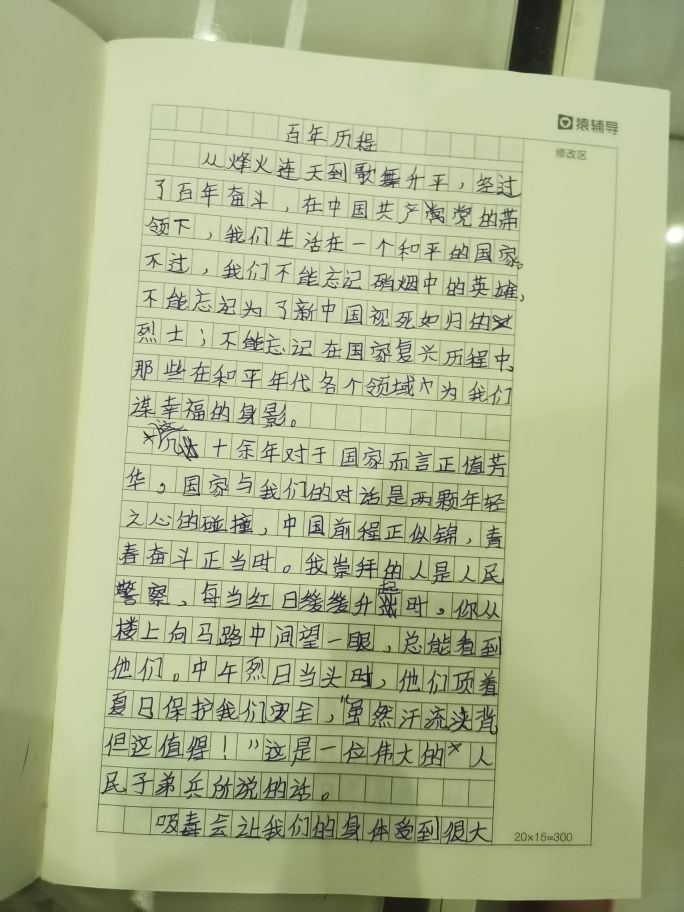 猿辅导
修改区
百年历程
从烽火连天到歌舞升平，经过
了百年奋斗，在中国共产党的带
领下，我们生活在一个和平的国家。
不过，我们不能忘记硝烟中的英雄，
不能忘记为了新中国视死如归的
烈士；不能忘记在国家复兴历程中，
那些在和平年代各个领域为我们
谋幸福的身影。
十余年对于国家而言正值芳
华，国家与我们的对话是两颗年轻
之心的碰撞，中国前程正似锦，青
春奋斗正当时。我崇拜的人是人民
警察，每当红日缓缓升起时。你从
楼上向马路中间望一眼，总能看到
他们。中午烈日当头时，他们顶着
夏日保护我们安全，"虽然汗流浃背
但这值得！"这是一位伟大的人
民子弟兵所说的话。
吸毒会让我们的身体受到很大
20x15=300